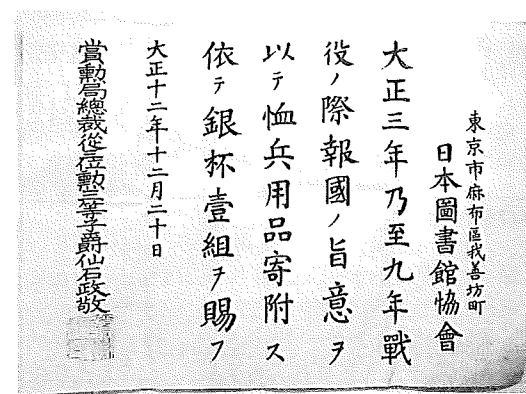 東京市麻布區我善坊町
日本圖書館協會
大正三年乃至九年戰
役ノ際報國ノ旨意ヲ
以テ恤兵用品寄附ス
依テ銀杯壹組ヲ賜フ
大正十二年十二月二十日
賞勳局總裁從三位勳一等子爵仙石政敬